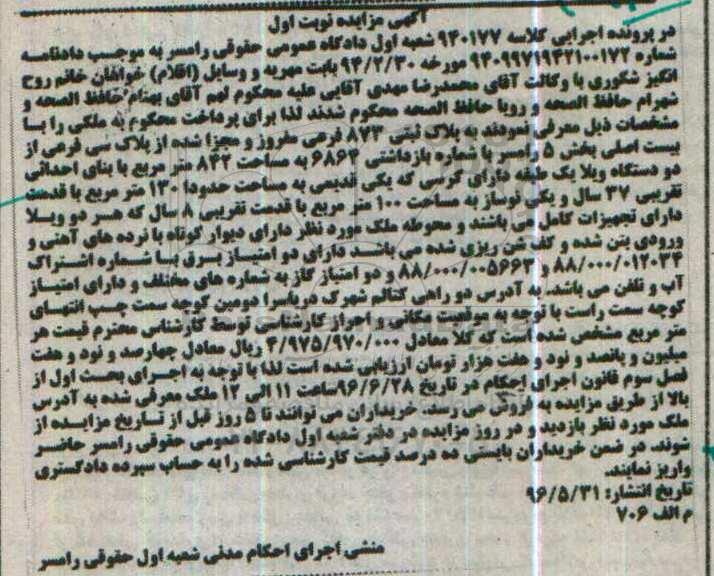 آگهی مزایده نوبت اول
در پرونده اجرایی کلاسه ۹۴۰۱۷۷ شعبه اول دادگاه عمومی حقوقی رامسر به موجب دادنامه
شماره ۹۴۰۹۹۷۱۹۴۲۱۰۰۱۷۲ مورخه ۹۴/۲/۳۰ بابت مهریه و وسایل (اقلام) خواهان خانم روح
انگیز شکوری با وکالت آقای محمدرضا مهدی آقایی علیه محکوم لهم آقای بهنام حافظ الصحه و
شهرام حافظ الصحه و رویا حافظ الصحه محکوم شدند لذا برای پرداخت محکوم به ملکی را با
مشخصات ذیل معرفی نمودند به پلاک ثبتی ۸۷۳ فرعی مفروز و مجزا شده از پلاک سی فرعی از
بیست اصلی بخش ۵ رامسر با شماره بازداشتی ۶۸۶۴ به مساحت ۸۴۲ متر مربع با بنای احداثی
دو دستگاه ویلا یک طبقه دارای کرسی که یکی قدیمی به مساحت حدودا ۱۳۰ متر مربع با قدمت
تقریبی ۳۷ سال و یکی نوساز به مساحت ۱۰۰ متر مربع با قدمت تقریبی ۸ سال که هر دو ویلا
دارای تجهیزات کامل می باشند و محوطه ملک مورد نظر دارای دیوار کوتاه با نرده های آهنی و
ورودی بتن شده و کف شن ریزی شده می باشد دارای دو امتیاز برق با شماره اشتراک
۸۸/۰۰۰/۰۱۲۰۳۴ و ۸۸/۰۰۰/۰۰۵۶۶۳ و دو امتیاز گاز به شماره های مختلف و دارای امتیاز
آب و تلفن می باشد. به آدرس دو راهی کتالم شهرک دریاسرا دومین کوچه سمت چپ انتهای
کوچه سمت راست با توجه به موقعیت مکانی و احراز کارشناسی توسط کارشناسی محترم قیمت هر
متر مربع مشخص شده است که کلا معادل ۴/۹۷۵/۹۷۰/۰۰۰ ریال معادل چهارصد و نود و هفت
میلیون و پانصد و نود و هفت هزار تومان ارزیابی شده است لذا با توجه به اجرای بحث اول از
فصل سوم قانون اجرای احکام در تاریخ ۹۶/۶/۲۸ ساعت ۱۱ الی ۱۲ ملک معرفی شده به آدرس
بالا از طریق مزایده به فروش می رسد. خریداران می توانند تا ۵ روز قبل از تاریخ مزایده از
ملک مورد نظر بازدید و در روز مزایده در دفتر شعبه اول دادگاه عمومی حقوقی رامسر حاضر
شوند. در ضمن خریداران بایستی ده درصد قیمت کارشناسی شده را به حساب سپرده دادگستری
واریز نمایند.
تاریخ انتشار: ۹۶/۵/۳۱
م الف ۷۰۶
منشی اجرای احکام مدنی شعبه اول حقوقی رامسر